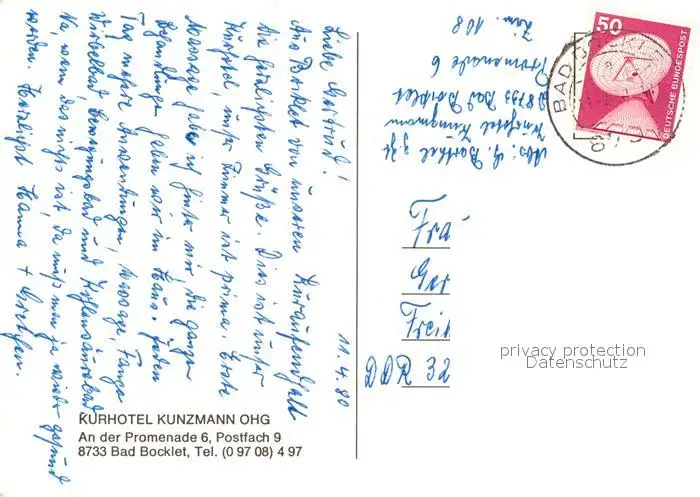 11.4.80
Liebe Gertrud!
Aus Bocklet von unseren Kuraufenthalt
die herzlichsten Grüße. Dies ist unser
Kurhotel, unser Zimmer ist prima. Erste
Massage habe ich hinter mir, die ganzen
Behandlungen haben wir im Haus. Jeden
Tag mehrere Anwendungen, Massage, Fango
Wirbelbad, Bewegungsbad und Kohlensäurebad
Na, wenn das nichts ist, da muß man ja wieder gesund
werden. Herzlichst Hanna +
KURHOTEL KUNZMANN OHG
An der Promenade 6, Postfach 9
8733 Bad Bocklet, Tel. (0 97 08) 4 97
Abs: G. Barthel z. Zt.
Kurhotel Kunzmann
D 8733 Bad Bocklet
Promenade 6
Zim. 108
50
DEUTSCHE BUNDESPOST
BAD BOCKLET
873
Fra
Ger
Frei
DDR 32
privacy protection
Datenschutz